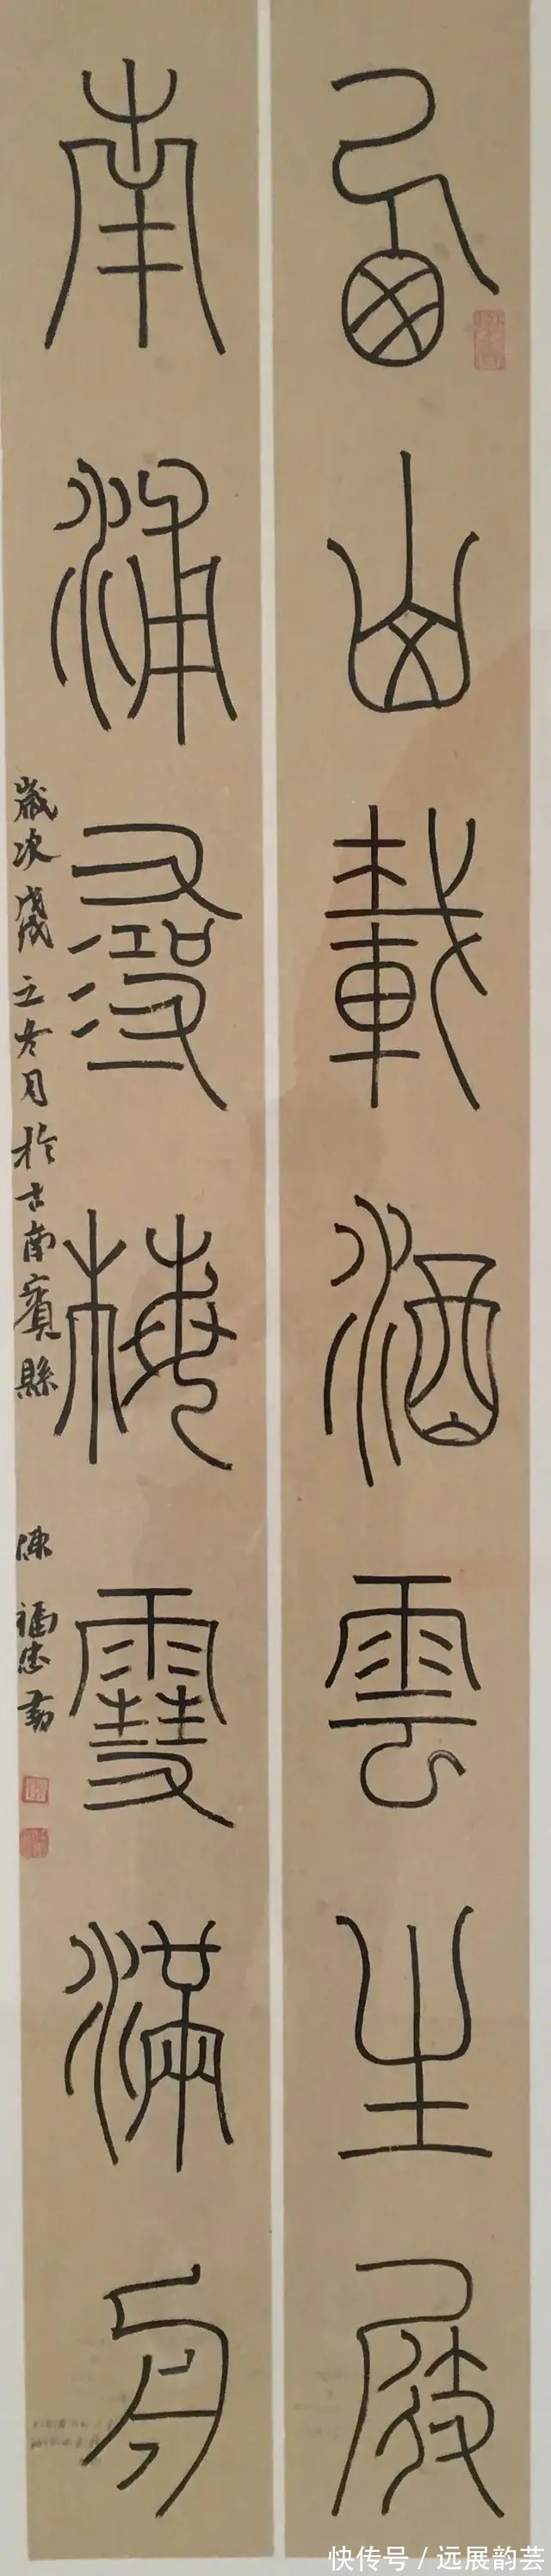 西山載酒雲生屐
南浦尋梅雪滿舟
歲次戊戌之冬月於古南賓縣 陳福忠
快传号 / 远展韵芸